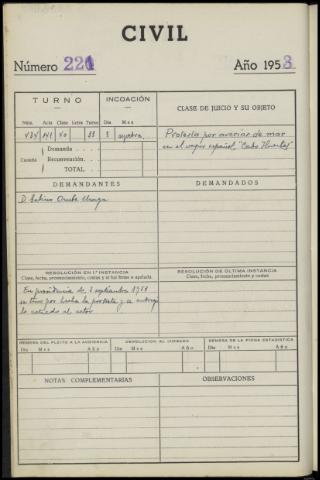 CIVIL
Número 221 Año 1953
TURNO INCOACIÓN CLASE DE JUICIO Y SU OBJETO
Núm. Acta Clase Letra Turno Día Mes
Protesta por averías de mar
en el vapor español "Cabo Huertas"
Demanda
Cuantía Reconvención
TOTAL
DEMANDANTES DEMANDADOS
D.
RESOLUCIÓN EN 1ª INSTANCIA
Clase, fecha, pronunciamiento, costas y si fué firme o apelada
RESOLUCIÓN DE ÚLTIMA INSTANCIA
Clase, fecha, pronunciamiento y costas
En providencia de 2 septiembre
se tuvo por hecha la protesta y se
lo actuado al actor
REMESA DEL PLEITO A LA AUDIENCIA DEVOLUCIÓN AL JUZGADO REMESA DE LA FICHA ESTADÍSTICA
Día Mes Año Día Mes Año Día Mes Año
NOTAS COMPLEMENTARIAS OBSERVACIONES